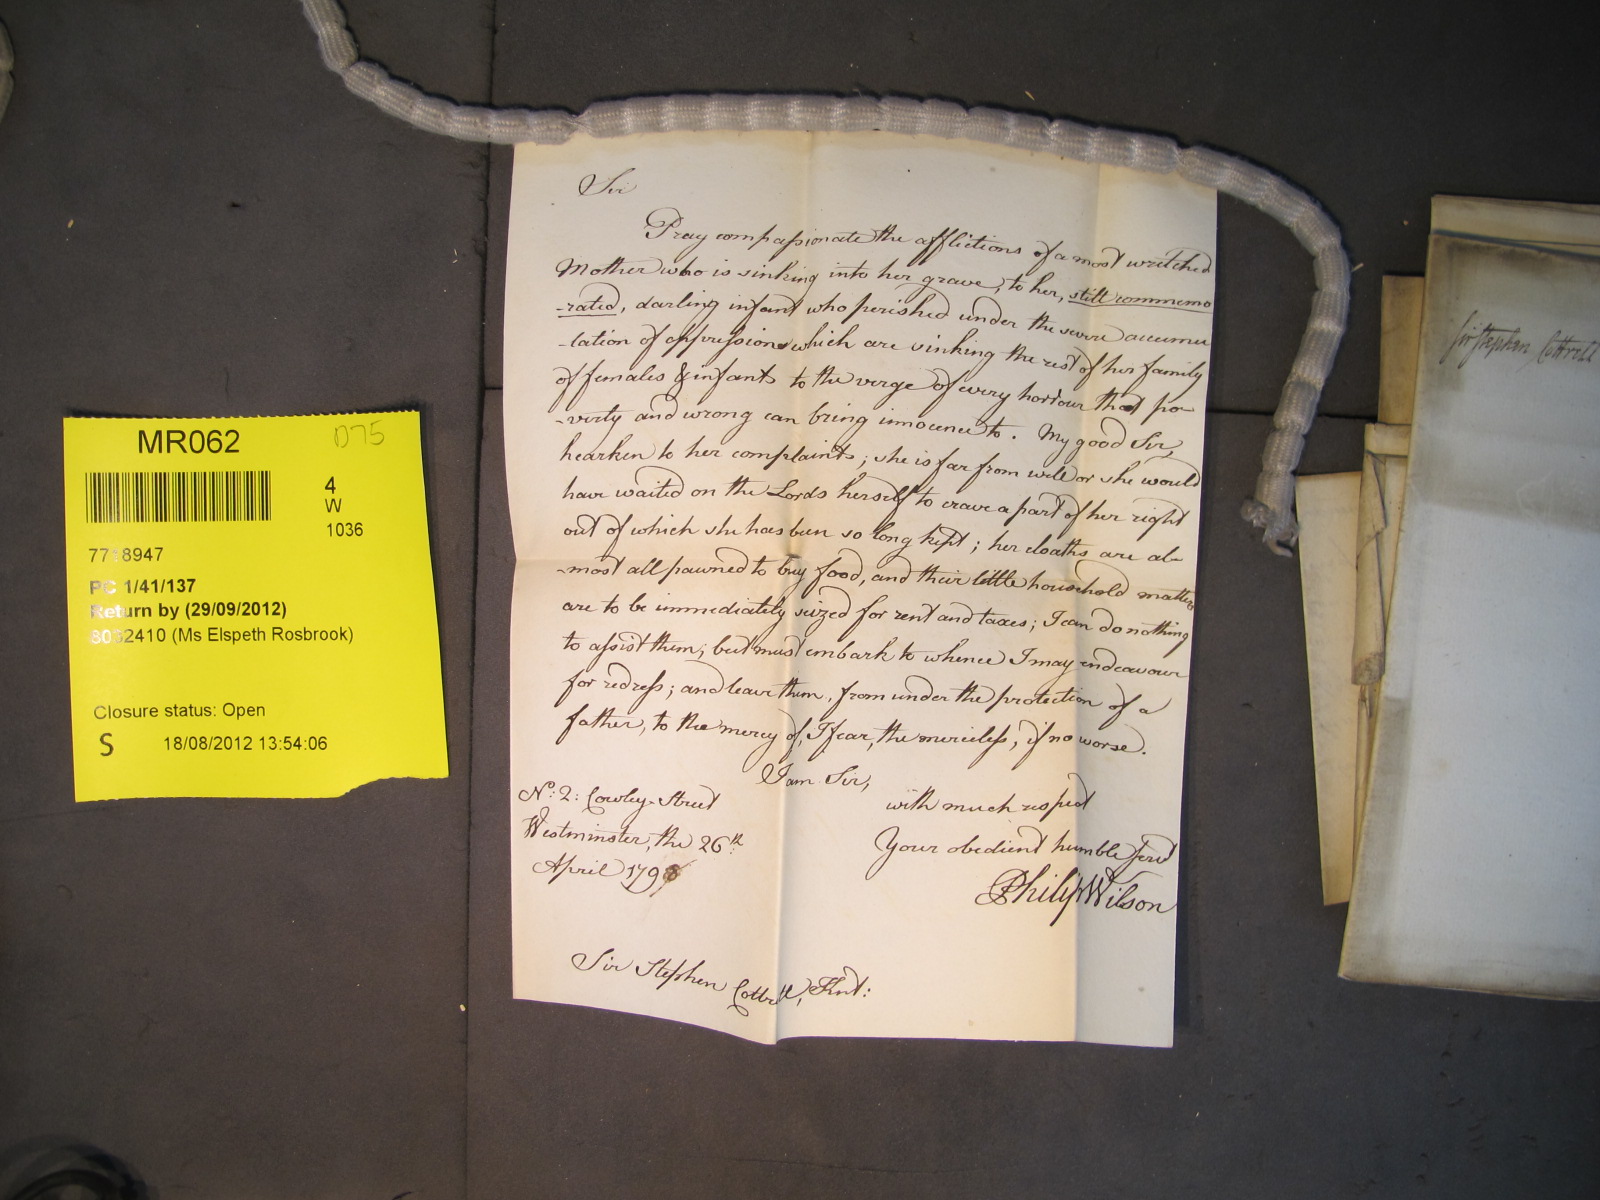 MR062
D75
4
W
1036
7718947
PC 1/41/137
Return by (29/09/2012)
8032410 (Ms Elspeth Rosbrook)
Closure status: Open
S 18/08/2012 13:54:06
Sir
Pray compassionate the afflictions of a most wretched
Mother who is sinking into her grave, to her, still commemo
-rated, darling infant who perished under the severe accumu
-lation of oppressions which are sinking the rest of her family
of females & infants to the verge of every horrour that po-
-verty and wrong can bring innocence to. My good Sir,
hearken to her complaints; she is far from well or she would
have waited on the Lords herself to crave a part of her right
out of which she has been so long kept; her cloaths are al-
-most all pawned to buy food, and their little household matters
are to be immediately seized for rent and taxes; I can do nothing
to assist them, but must embark to whence I may endeavour
for redress; and leave them, from under the protection of a
father, to the mercy of, I fear, the merciless, if no worse.
I am Sir,
with much respect
Your obedient humble servt
Philip Wilson
No. 2: Cowley-Street
Westminster, the 26th:
April 1798
Sir Stephen Cottrell, Knt:
Sir Stephen Cottrell